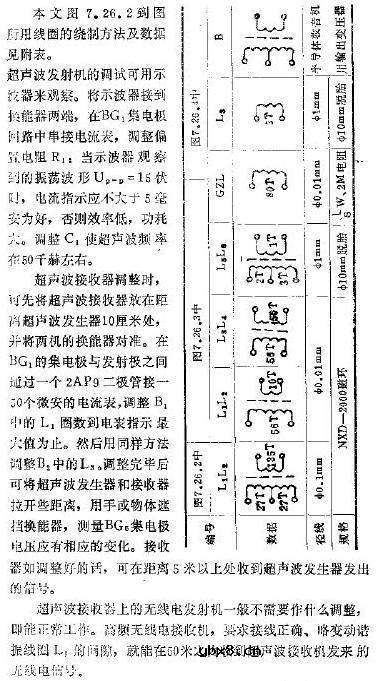 本文图7.26.2到图
所用线圈的绕制方法及数据
见附表。
超声波发射机的调试可用示
波器来观察。将示波器接到
换能器两端，在BG₁集电极
回路中串接电流表，调整偏
置电阻R₁；当示波器观察
到的振荡波形Uₚ₋ₚ=15伏
时，电流指示应不大于5毫
安为好，否则效率低，功耗
大。调整C₁使超声波频率
在50千赫左右。
超声波接收器调整时，
可先将超声波接收器放在距
离超声波发生器10厘米处，
并将两机的换能器对准。在
BG₁的集电极与发射极之间
通过一个2AP9二极管接一
50个微安的电流表，调整B₁
中的L₁圈数到电表指示最
大值为止。然后用同样方法
调整B₂中的L₃。调整完毕后
可将超声波发生器和接收器
拉开些距离，用手或物体遮
挡换能器，测量BG₅集电极
电压应有相应的变化。接收
器如调整好的话，可在距离5米以上处收到超声波发生器发出
的信号。
超声波接收器上的无线电发射机一般不需要作什么调整，
即能正常工作。高频无线电接收机，要求接线正确、略变动谐
振线图L₁的间隙，就能在50米
超声波接收机发来的
无线电信号。
编号
数据
径线
规格
图7.26.2中
L₁L₂
27T
27T
135T
φ0.1mm
图7.26.3中
L₁L₂
56T
10T
L₃L₄
56T
56T
φ0.01mm
NXD—2000磁环
L₅L₆
2T
3T
1T
φ1mm
φ10mm脱胎
GZL
80T
φ0.01mm
W、2M电阻
图7.26.4中
L₈
3T
φ1mm
φ10mm脱胎
B
半导体收音机
用输出变压器